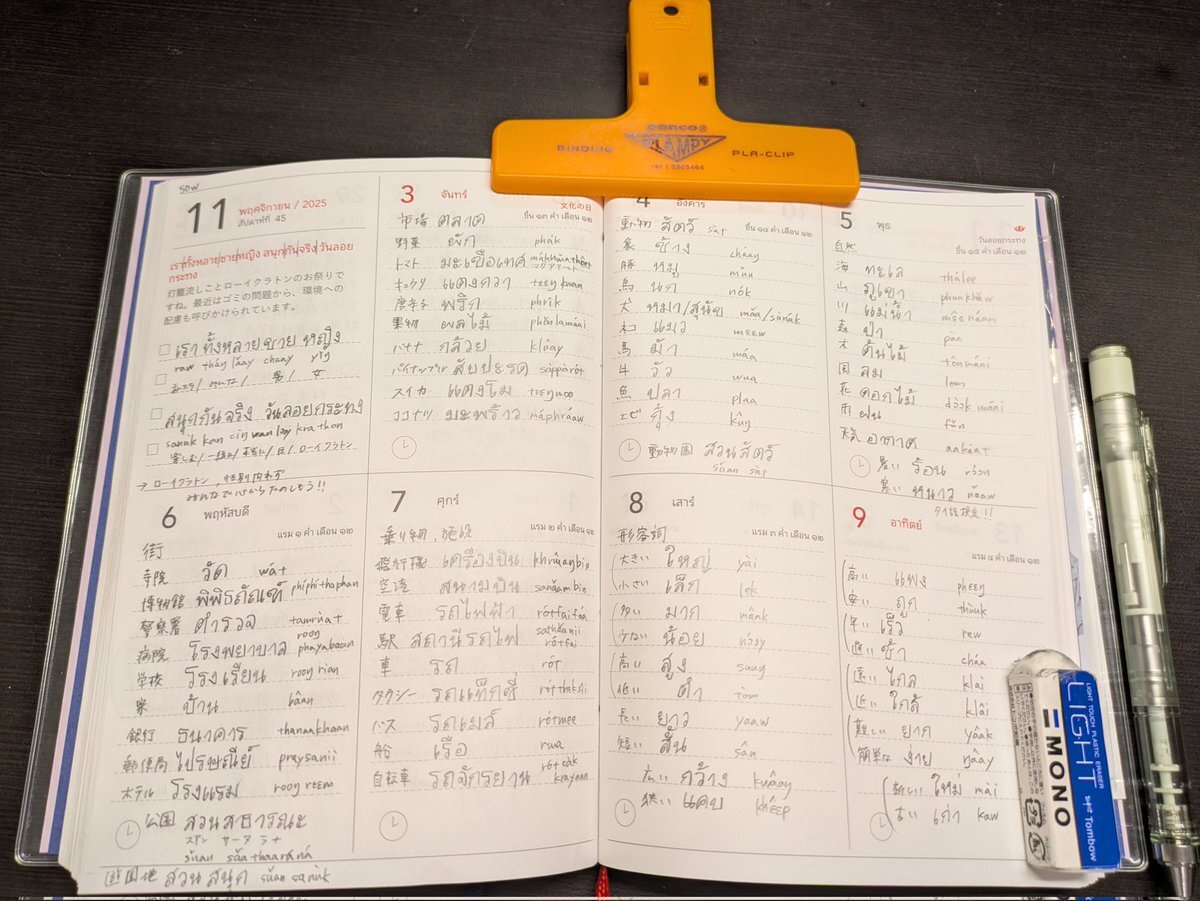 Penco®
CLAMPY
BINDING
PLA-CLIP
ref : 9265464
11
พฤศจิกายน / 2025
สัปดาห์ที่ 45
เราทั้งหลายชายหญิง สนุกกันจริง วันลอย
กระทง
灯籠流しことローイクラトンのお祭りで
すね。最近はゴミの問題から、環境への
配慮も呼びかけられています。
เราทั้งหลายชายหญิง
raw tháŋ lǎay chaay yǐŋ
私たち/みんな/男/女
สนุกกันจริง วันลอยกระทง
sanuk kan ciŋ wan looy krathon
楽しむ/一緒に/本当に/日/ローイクラトン
→ ローイクラトン、性別問わず
みんなで心からたのしもう!!
3 จันทร์
文化の日
ขึ้น ๑๓ ค่ำ เดือน ๑๒
市場 ตลาด
野菜 ผัก phàk
トマト มะเขือเทศ mákhʉ̌athêet
キュウリ แตงกวา teeŋ kuaa
唐辛子 พริก phrík
果物 ผลไม้ phǒnlamáai
バナナ กล้วย klûay
パイナップル สับปะรด sàppàrót
スイカ แตงโม teeŋmoo
ココナツ มะพร้าว máphráaw
4 อังคาร
ขึ้น ๑๔ ค่ำ เดือน ๑๒
動物 สัตว์ sàt
象 ช้าง cháaŋ
豚 หมู mǔu
鳥 นก nók
犬 หมา/สุนัข mǎa/sùnák
ネコ แมว meew
馬 ม้า máa
牛 วัว wua
魚 ปลา plaa
エビ กุ้ง kûŋ
動物園 สวนสัตว์
sǔan sàt
5 พุธ
วันลอยกระทง
ขึ้น ๑๕ ค่ำ เดือน ๑๒
自然
海 ทะเล thálee
山 ภูเขา phuu khǎw
川 แม่น้ำ mêe náam
森 ป่า pàa
木 ต้นไม้ tôn máai
風 ลม lom
花 ดอกไม้ dɔ̀ɔk máai
雨 ฝน fǒn
天気 อากาศ aakàat
暑い ร้อน rɔ́ɔn
寒い หนาว nǎaw
タイ語検定!!
6 พฤหัสบดี
แรม ๑ ค่ำ เดือน ๑๒
街
寺院 วัด wát
博物館 พิพิธภัณฑ์ phíphítthaphan
警察署 ตำรวจ tamrùat
病院 โรงพยาบาล rooŋ phayabaan
学校 โรงเรียน rooŋ rian
家 บ้าน bâan
銀行 ธนาคาร thanaakhaan
郵便局 ไปรษณีย์ praysanii
ホテル โรงแรม rooŋ reem
公園 สวนสาธารณะ
スアン サータラナ
sǔan sǎathaaráná
遊園地 สวนสนุก sǔan sanùk
7 ศุกร์
แรม ๒ ค่ำ เดือน ๑๒
乗り物、施設
飛行機 เครื่องบิน khrʉ̂aŋbin
空港 สนามบิน sanǎambin
電車 รถไฟฟ้า rótfaifáa
駅 สถานีรถไฟ sathǎanii rótfai
車 รถ rót
タクシー รถแท็กซี่ rót théksîi
バス รถเมล์ rótmee
船 เรือ rʉa
自転車 รถจักรยาน rót càk krayaan
8 เสาร์
แรม ๓ ค่ำ เดือน ๑๒
形容詞
大きい ใหญ่ yài
小さい เล็ก lék
多い มาก mâak
少ない น้อย nɔ́ɔy
高い สูง sǔuŋ
低い ต่ำ tàm
長い ยาว yaaw
短い สั้น sân
広い กว้าง kwâaŋ
狭い แคบ khêep
9 อาทิตย์
แรม ๔ ค่ำ เดือน ๑๒
高い แพง pheeŋ
安い ถูก thùuk
早い เร็ว rew
遅い ช้า cháa
遠い ไกล klai
近い ใกล้ klâi
難しい ยาก yâak
簡単な ง่าย ŋâay
新しい ใหม่ mài
古い เก่า kàw
LIGHT TOUCH PLASTIC ERASER
LIGHT
MONO
Tombow